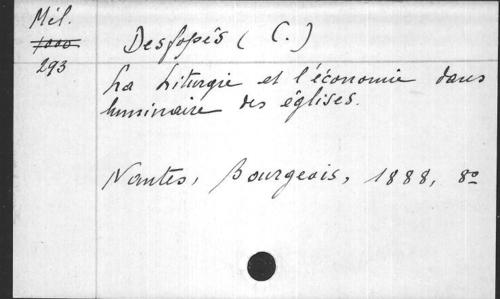 Mél.
1000
293
Desfopès (C.)
La Liturgie et l'économie dans
luminaire des églises.
Nantes, Bourgeois, 1888, 8º